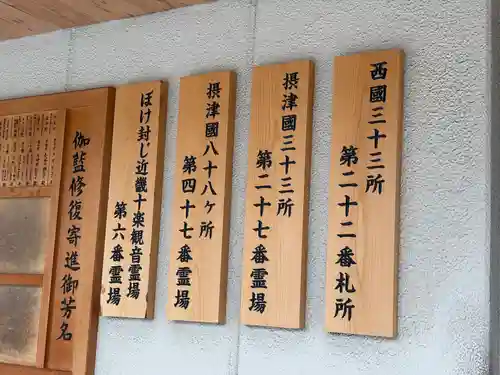 西國三十三所
第二十二番札所
摂津國三十三所
第二十七番霊場
摂津國八十八ヶ所
第四十七番霊場
ぼけ封じ近畿十楽観音霊場
第六番霊場
伽藍修復寄進御芳名